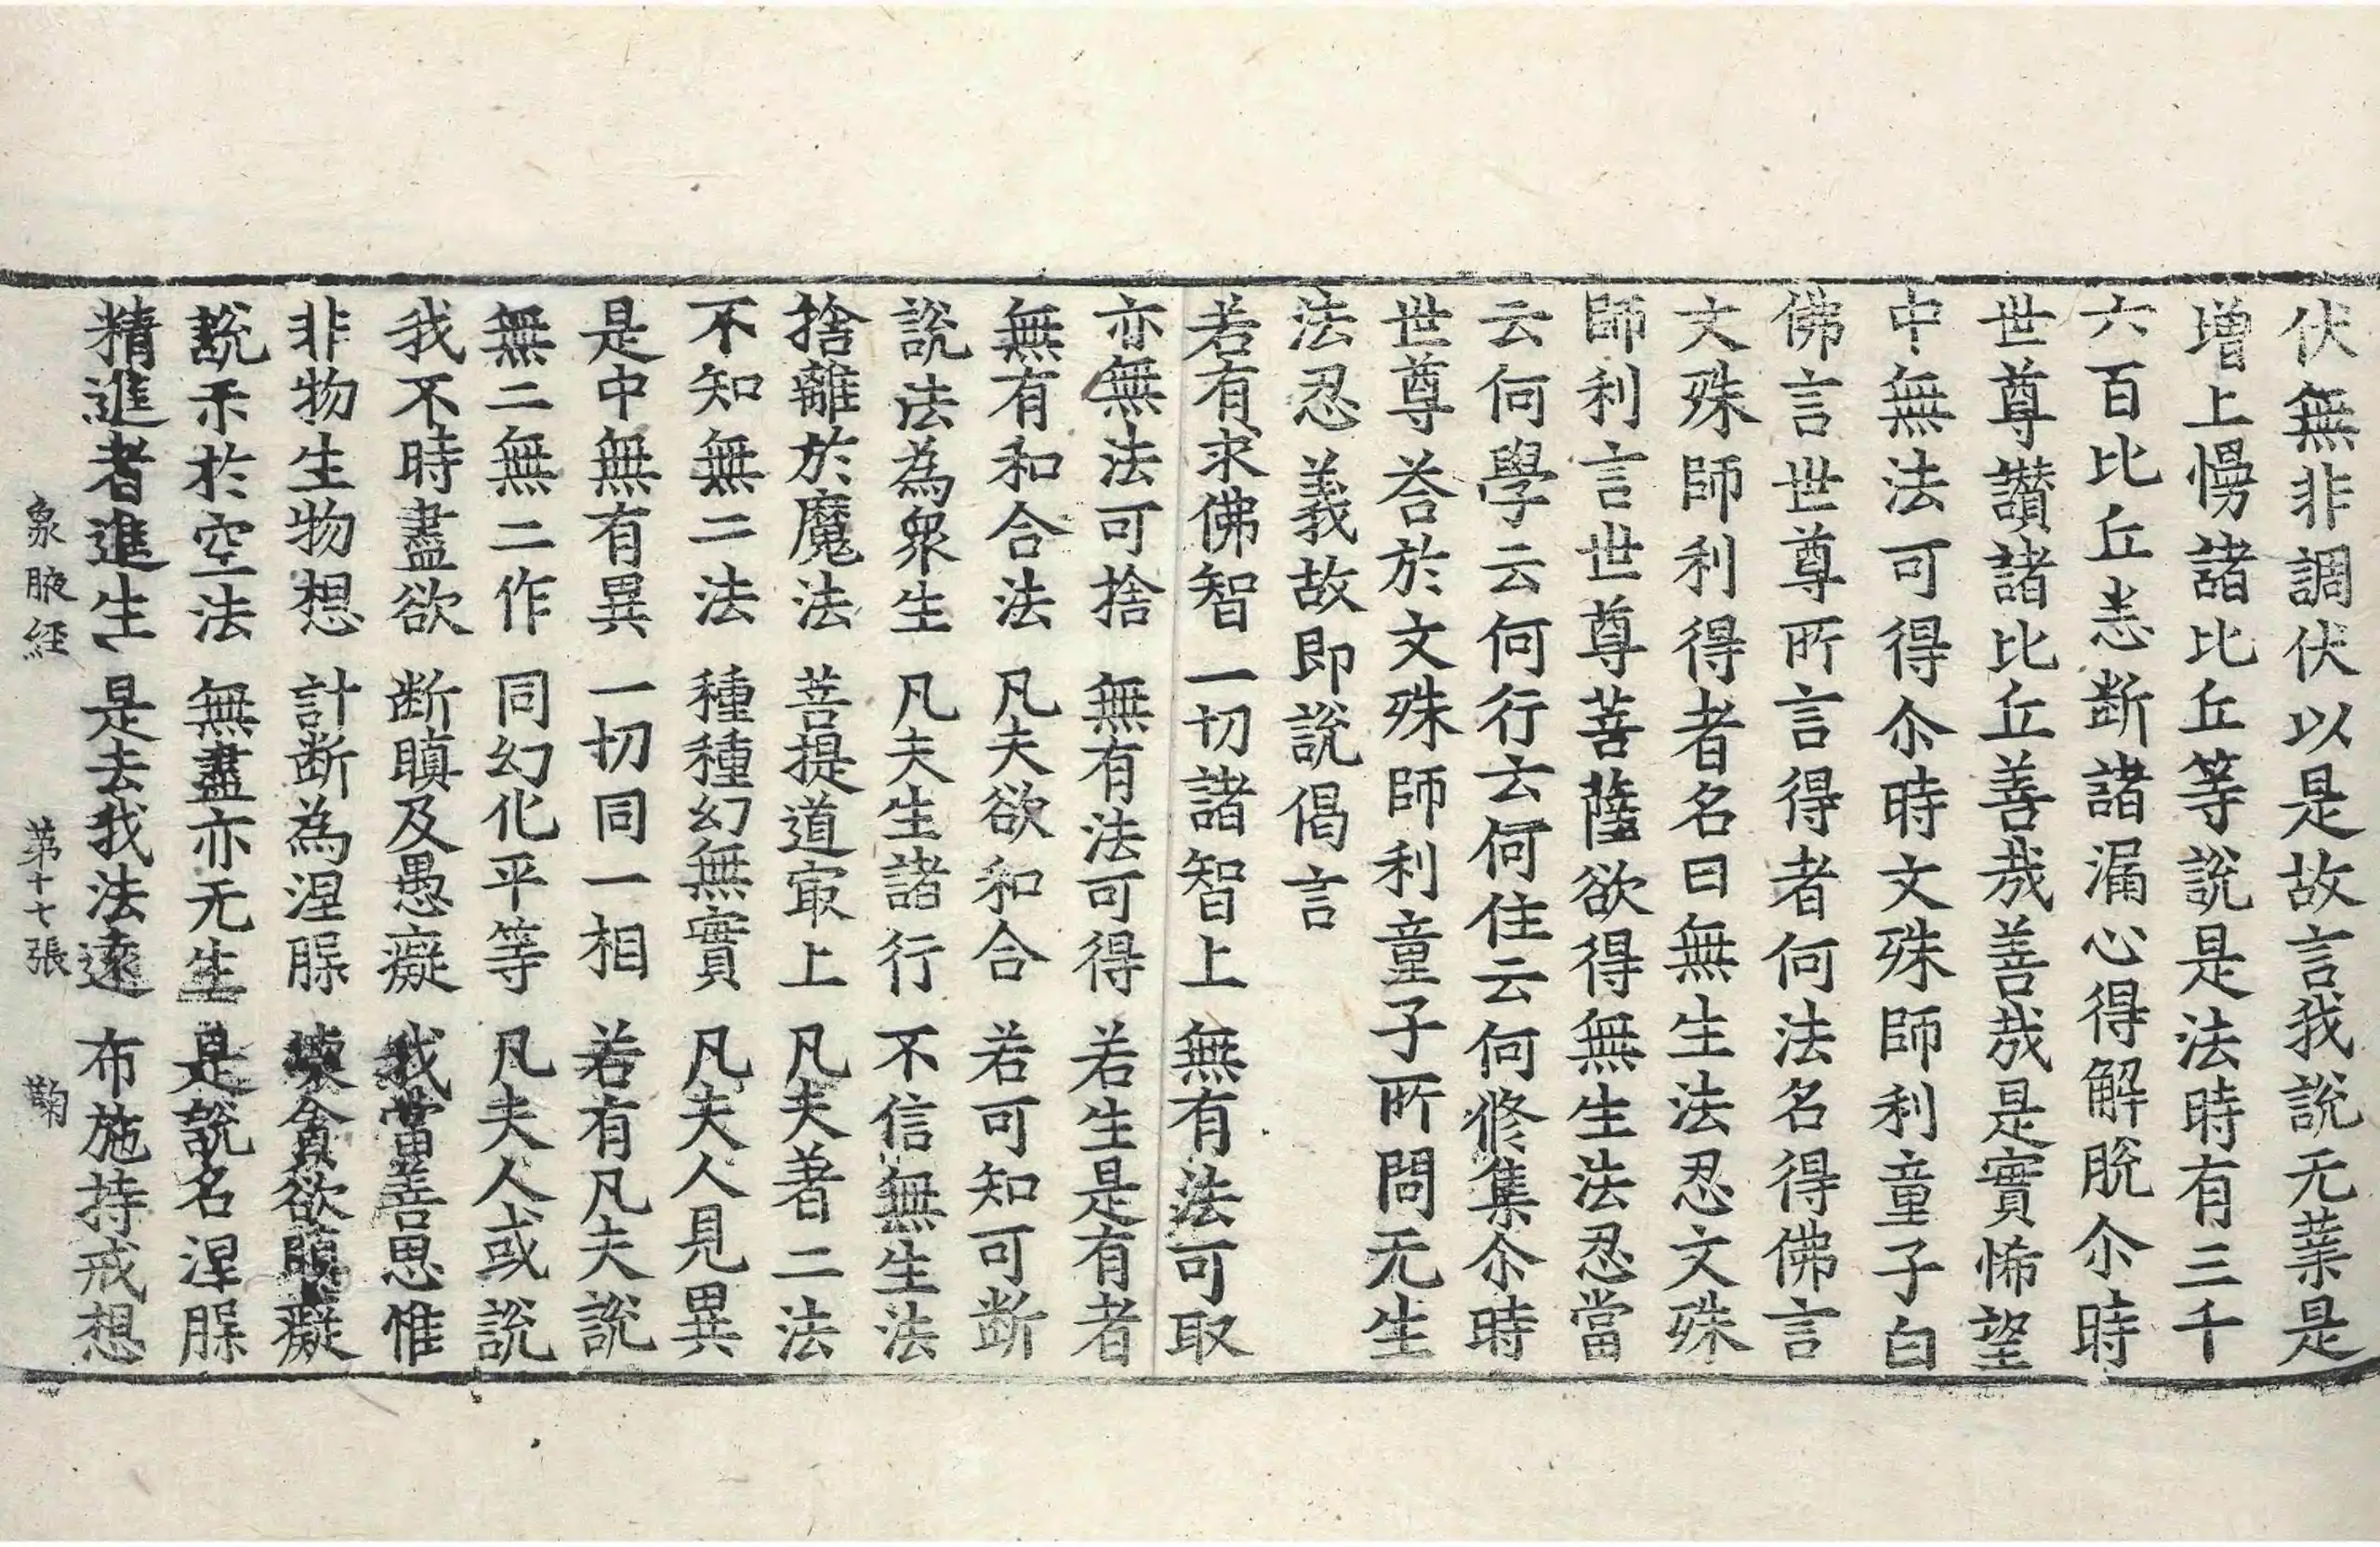 伏無非調伏以是故言我說无業是
增上慢諸比丘等說是法時有三千
六百比丘恚断諸漏心得解脫尒時
世尊讃諸比丘善㢤善㢤是實悕望
中無法可得尒時文殊師利童子白
佛言世尊所言得者何法名得佛言
文殊師利得者名曰無生法忍文殊
師利言世尊菩薩欲得無生法忍當
云何學云何行云何住云何修集尒時
世尊荅於文殊師利童子所問无生
法忍義故即說偈言
若有求佛智　一切諸智上　無有法可取
亦無法可捨　無有法可得　若生是有者
無有和合法　凡夫欲和合　若可知可断
說法為衆生　凡夫生諸行　不信無生法
捨離於魔法　菩提道㝡上　凡夫著二法
不知無二法　種種幻無實　凡夫人見異
是中無有異　一切同一相　若有凡夫說
無二無二作　同幻化平等　凡夫人或說
我不時盡欲　断瞋及愚癡　我當善思惟
非物生物想　計断為涅脲　壞貪欲瞋癡
說示於空法　無盡亦无生　是說名涅脲
精進者進生　是去我法遠　布施持戒想
象腋経　第十七張　鞠